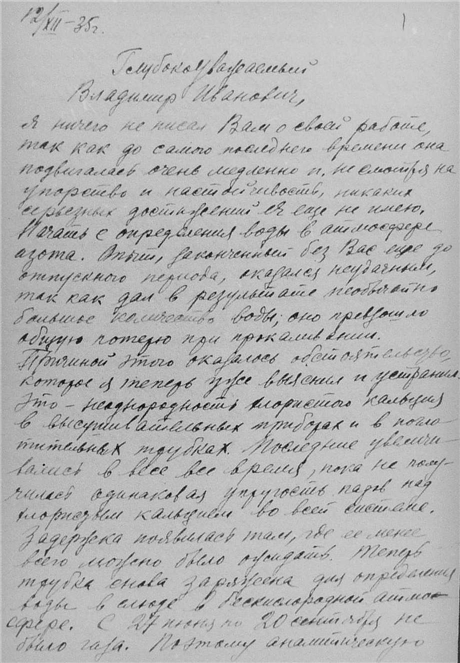 12/XII-35г.
1
Глубокоуважаемый
Владимир Иванович,
Я ничего не писал Вам о своей работе,
так как до самого последнего времени она
подвигалась очень медленно и, несмотря на
упорство и настойчивость, никаких
серьезных достижений я еще не имею.
Начать с определения воды в атмосфере
азота. Опыт, законченный без Вас еще до
отпускного периода, оказался неудачным,
так как дал в результате необычайно
большое количество воды, оно превзошло
общую потерю при прокаливании.
Причиной этого оказалось обстоятельство,
которое я теперь уже выяснил и устранил.
Это - неоднородность хлористого кальция
в высушивательных приборах и в погло-
тительных трубках. Последние увеличи-
вались в весе все время, пока не полу-
чилась одинаковая упругость паров над
хлористым кальцием во всей системе.
Задержка появилась там, где ее менее
всего можно было ожидать. Теперь
трубка снова заряжена для определения
воды в слюде в бескислородной атмо-
сфере. С 27 июня по 20 сентября не
было газа. Поэтому аналитическую